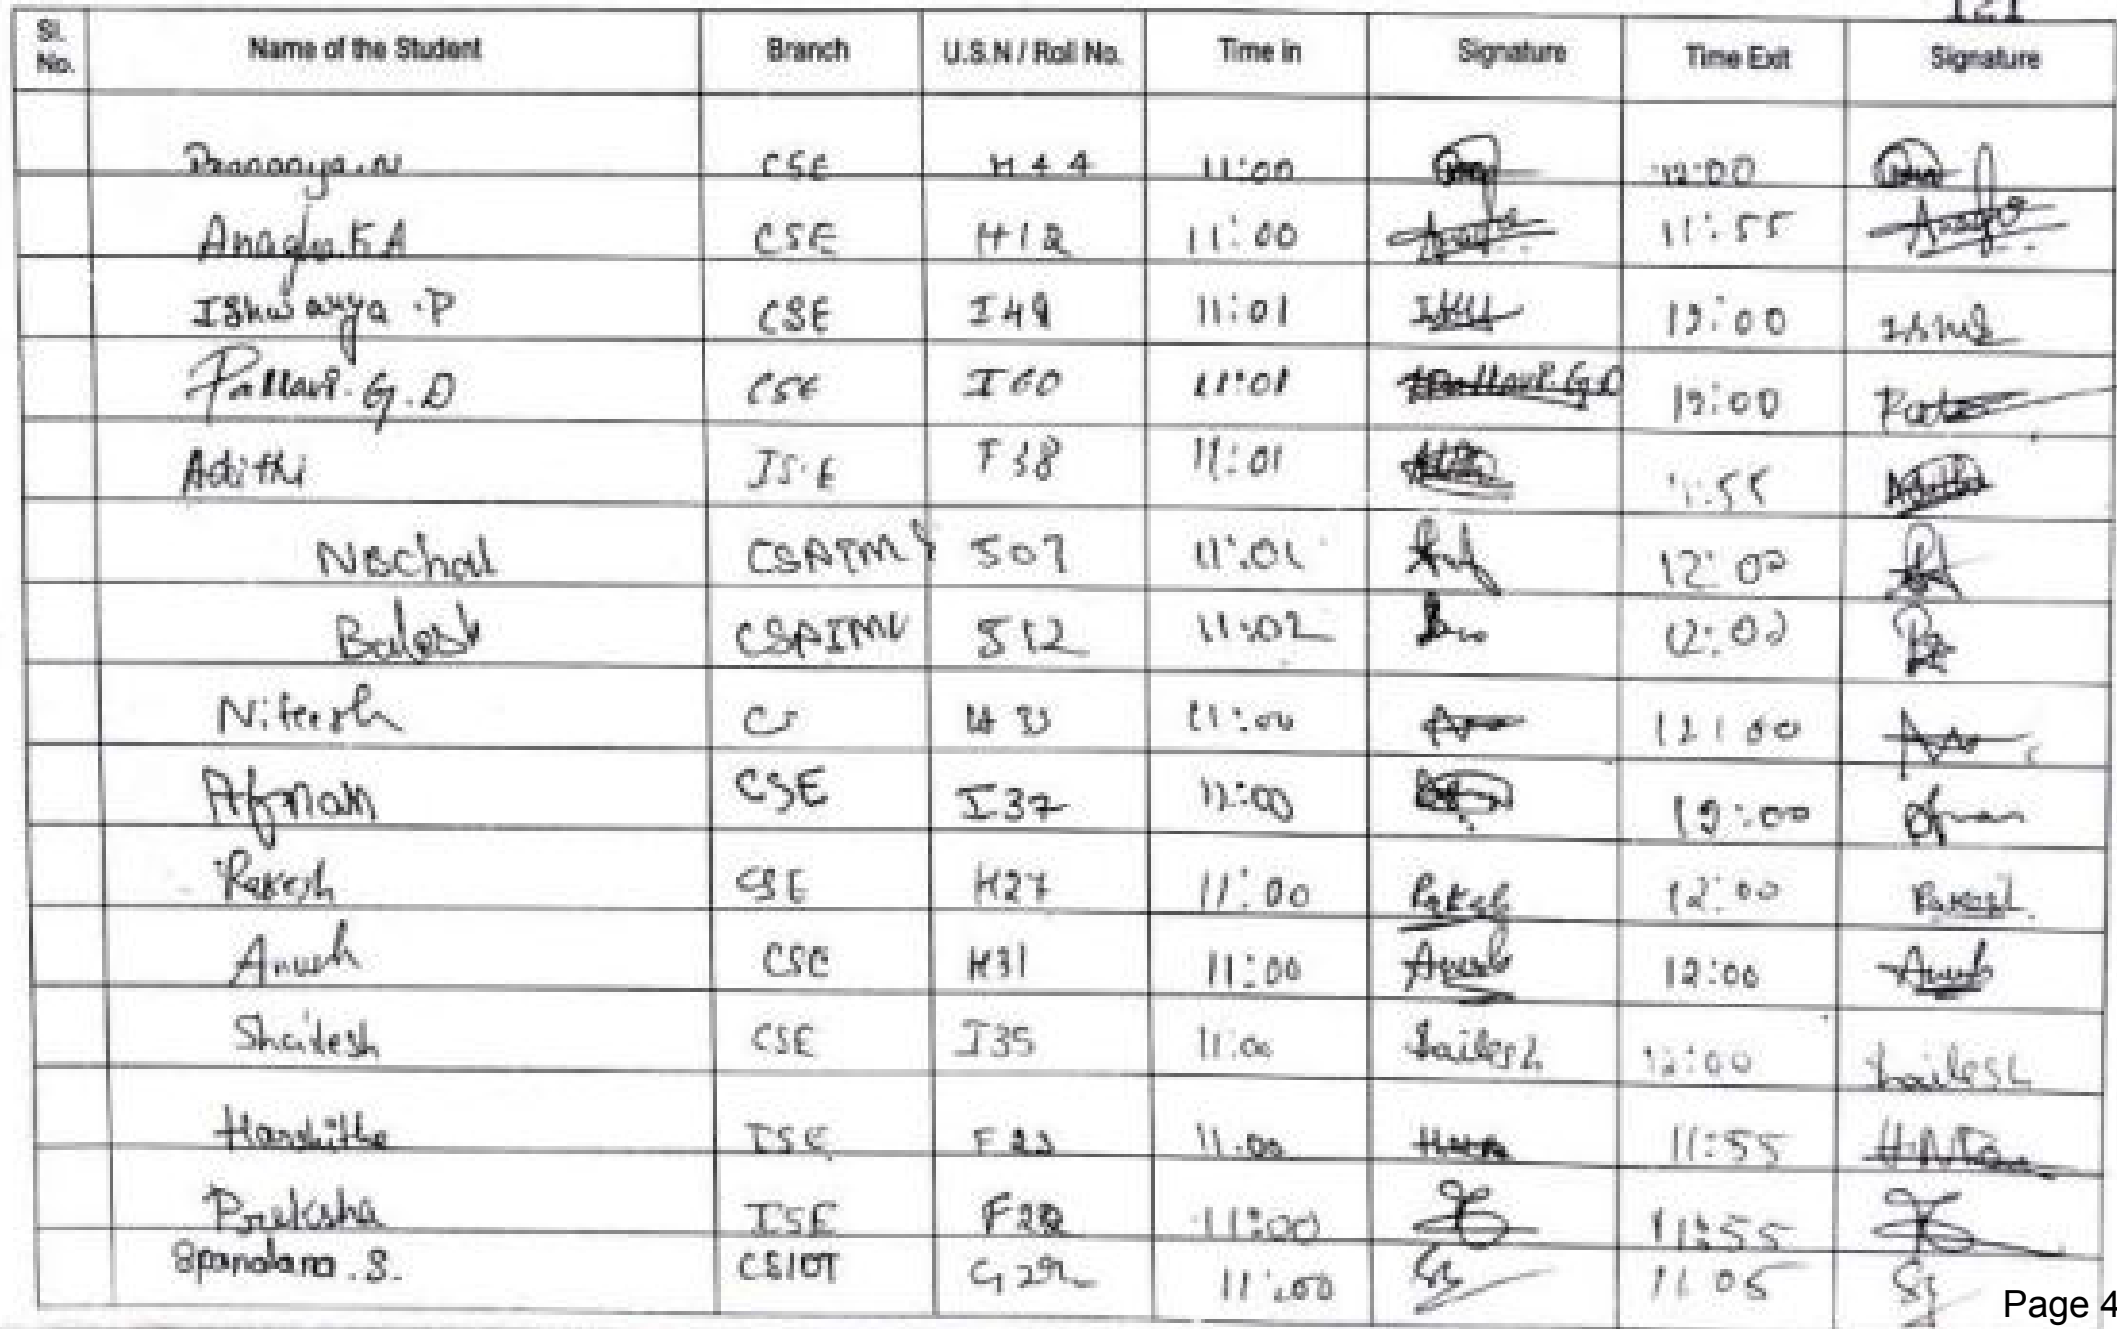 121
Sl. No. Name of the Student Branch U.S.N / Roll No. Time in Signature Time Exit Signature
Prananya.N CSE H44 11:00 12:00
Anagha.K A CSE H12 11:00 Anagha 11:55 Anagha
Ishwarya .P CSE I48 11:01 12:00
Pallavi. G.D CSE I60 11:01 Pallavi.G.D 12:00
Adithi ISE F38 11:01 11:55 Adithi
Nischal CSAIML J07 11:01 12:00
Balesh CSAIML J12 11:02 12:00
Niteesh CS 11:00 12:00
Afnan CSE I37 12:00
Rakesh CSE H27 11:00 Rakesh 12:00 Rakesh
Anush CSE H31 11:00 Anush 12:00 Anush
Shailesh CSE I35 11:00 Sailesh 12:00 Sailesh
Harshitha ISE F23 11:00 11:55
Preksha ISE F22 11:00 11:55
Spandana .S. CSIOT G29 11:00 11:05
Page 4